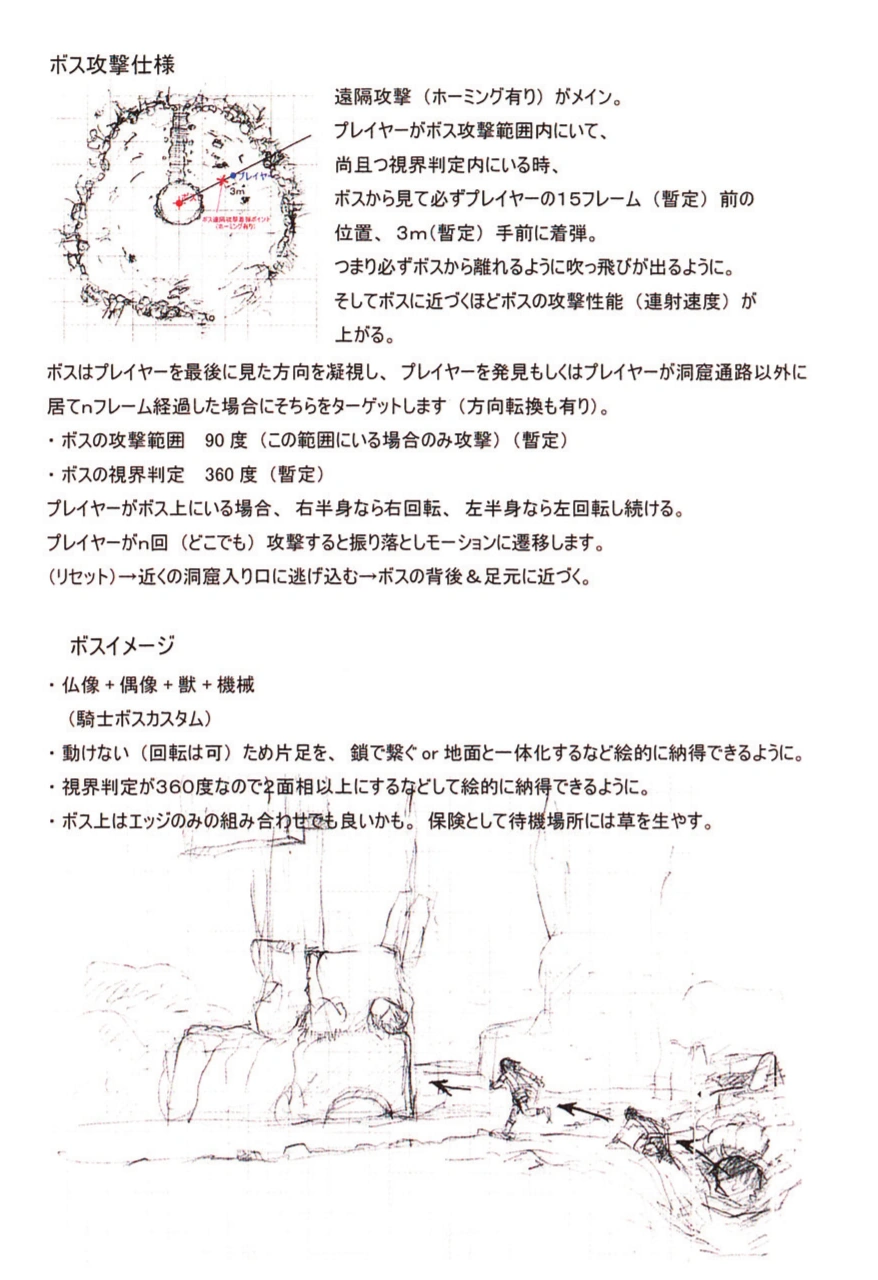 ボス攻撃仕様
プレイヤー
3m
ボス
ボス遠隔攻撃着弾ポイント
（ホーミング有り）
遠隔攻撃（ホーミング有り）がメイン。
プレイヤーがボス攻撃範囲内にいて、
尚且つ視界判定内にいる時、
ボスから見て必ずプレイヤーの15フレーム（暫定）前の
位置、3m(暫定）手前に着弾。
つまり必ずボスから離れるように吹っ飛びが出るように。
そしてボスに近づくほどボスの攻撃性能（連射速度）が
上がる。
ボスはプレイヤーを最後に見た方向を凝視し、プレイヤーを発見もしくはプレイヤーが洞窟通路以外に
居てnフレーム経過した場合にそちらをターゲットします（方向転換も有り）。
・ボスの攻撃範囲　90度（この範囲にいる場合のみ攻撃）（暫定）
・ボスの視界判定　360度（暫定）
プレイヤーがボス上にいる場合、右半身なら右回転、左半身なら左回転し続ける。
プレイヤーがn回（どこでも）攻撃すると振り落としモーションに遷移します。
(リセット)→近くの洞窟入り口に逃げ込む→ボスの背後＆足元に近づく。
ボスイメージ
・仏像+偶像+獣+機械
（騎士ボスカスタム）
・動けない（回転は可）ため片足を、鎖で繋ぐor地面と一体化するなど絵的に納得できるように。
・視界判定が360度なので2面相以上にするなどして絵的に納得できるように。
・ボス上はエッジのみの組み合わせでも良いかも。保険として待機場所には草を生やす。